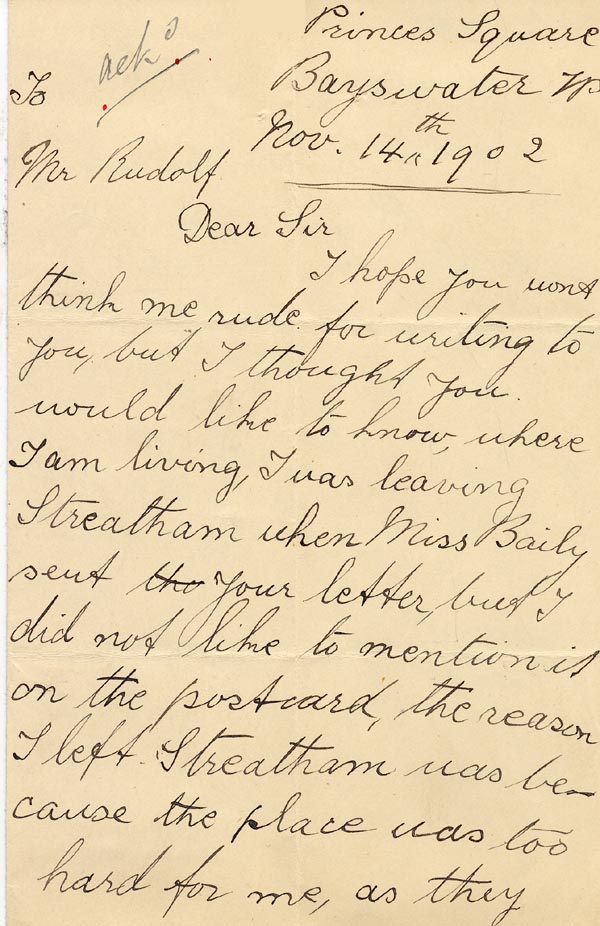 Princes Square
ackd
To
Bayswater W
Nov. 14th 1902
Mr Rudolf
Dear Sir
I hope you wont
think me rude for writing to
you, but I thought you
would like to know, where
I am living, I was leaving
Streatham when Miss Baily
sent tho your letter, but I
did not like to mention it
on the postcard, the reason
I left Streatham was be-
cause the place was too
hard for me, as they